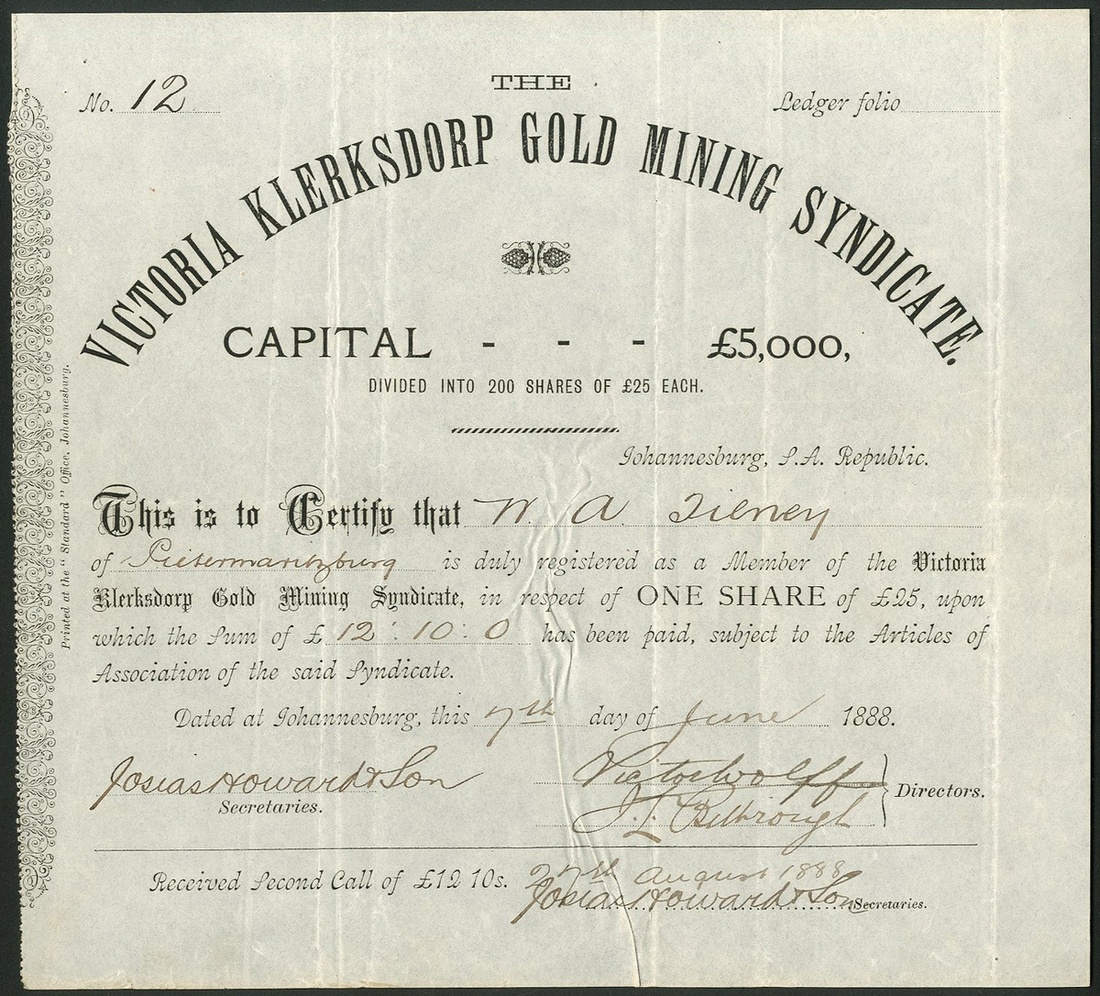 No. 12
THE
Ledger folio
VICTORIA KLERKSDORP GOLD MINING SYNDICATE.
CAPITAL - - - £5,000,
DIVIDED INTO 200 SHARES OF £25 EACH.
Johannesburg, S.A. Republic.
This is to Certify that W. A. Tilney
of Pietermaritzburg is duly registered as a Member of the Victoria
Klerksdorp Gold Mining Syndicate, in respect of ONE SHARE of £25, upon
which the Sum of £ 12:10:0 has been paid, subject to the Articles of
Association of the said Syndicate.
Dated at Johannesburg, this 7th day of June 1888.
Josias Howard & Son
Secretaries.
Victor Wolff
J. L. Bilbrough
Directors.
Received Second Call of £12 10s. 27th August 1888
Josias Howard & Son Secretaries.
Printed at the "Standard" Office, Johannesburg.